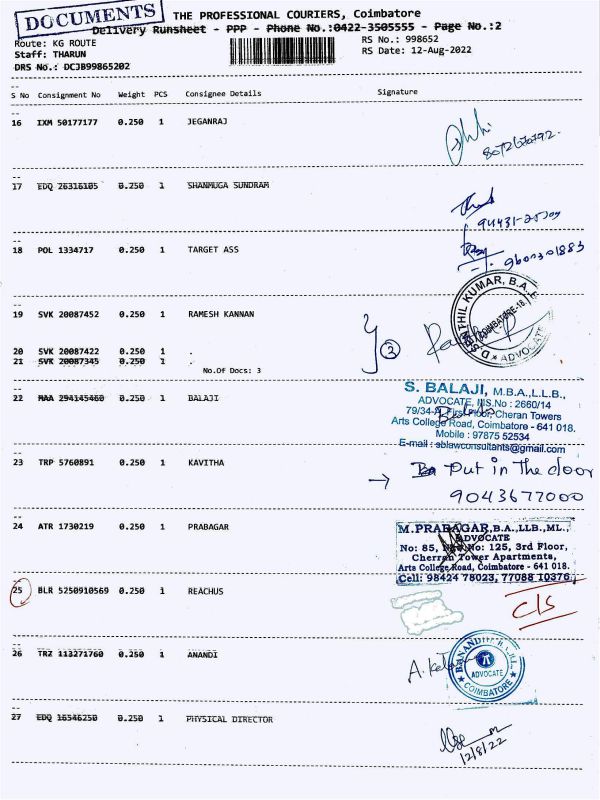 DOCUMENTS
THE PROFESSIONAL COURIERS, Coimbatore
Delivery Runsheet - PPP - Phone No.:0422-3505555 - Page No.:2
Route: KG ROUTE
RS No.: 998652
Staff: THARUN
RS Date: 12-Aug-2022
DRS No.: DCJB99865202
S No Consignment No Weight PCS Consignee Details Signature
16 IXM 50177177 0.250 1 JEGANRAJ
17 EDQ 26316105 0.250 1 SHANMUGA SUNDRAM
18 POL 1334717 0.250 1 TARGET ASS
9600301883
D.SENTHIL KUMAR, B.A.
COIMBATORE-18
ADVOCATE
19 SVK 20087452 0.250 1 RAMESH KANNAN
20 SVK 20087422 0.250 1 .
21 SVK 20087345 0.250 1 .
3
No.Of Docs: 3
22 MAA 294145460 0.250 1 BALAJI
S. BALAJI, M.B.A.,L.L.B.,
ADVOCATE, MS.No : 2660/14
79/34-A, First Floor, Cheran Towers
Arts College Road, Coimbatore - 641 018.
Mobile : 97875 52534
E-mail : sblawconsultants@gmail.com
Balaji
23 TRP 5760891 0.250 1 KAVITHA
→ Put in the door
9043677000
24 ATR 1730219 0.250 1 PRABAGAR
M.PRABAGAR,B.A.,LLB.,ML.,
ADVOCATE
No: 85, New No: 125, 3rd Floor,
Cherran Tower Apartments,
Arts College Road, Coimbatore - 641 018.
Cell: 98424 78023, 77088 10376
25 BLR 5250910569 0.250 1 REACHUS
C/S
26 TRZ 113271760 0.250 1 ANANDI
ADVOCATE
COIMBATORE
27 EDQ 16546250 0.250 1 PHYSICAL DIRECTOR
12/8/22